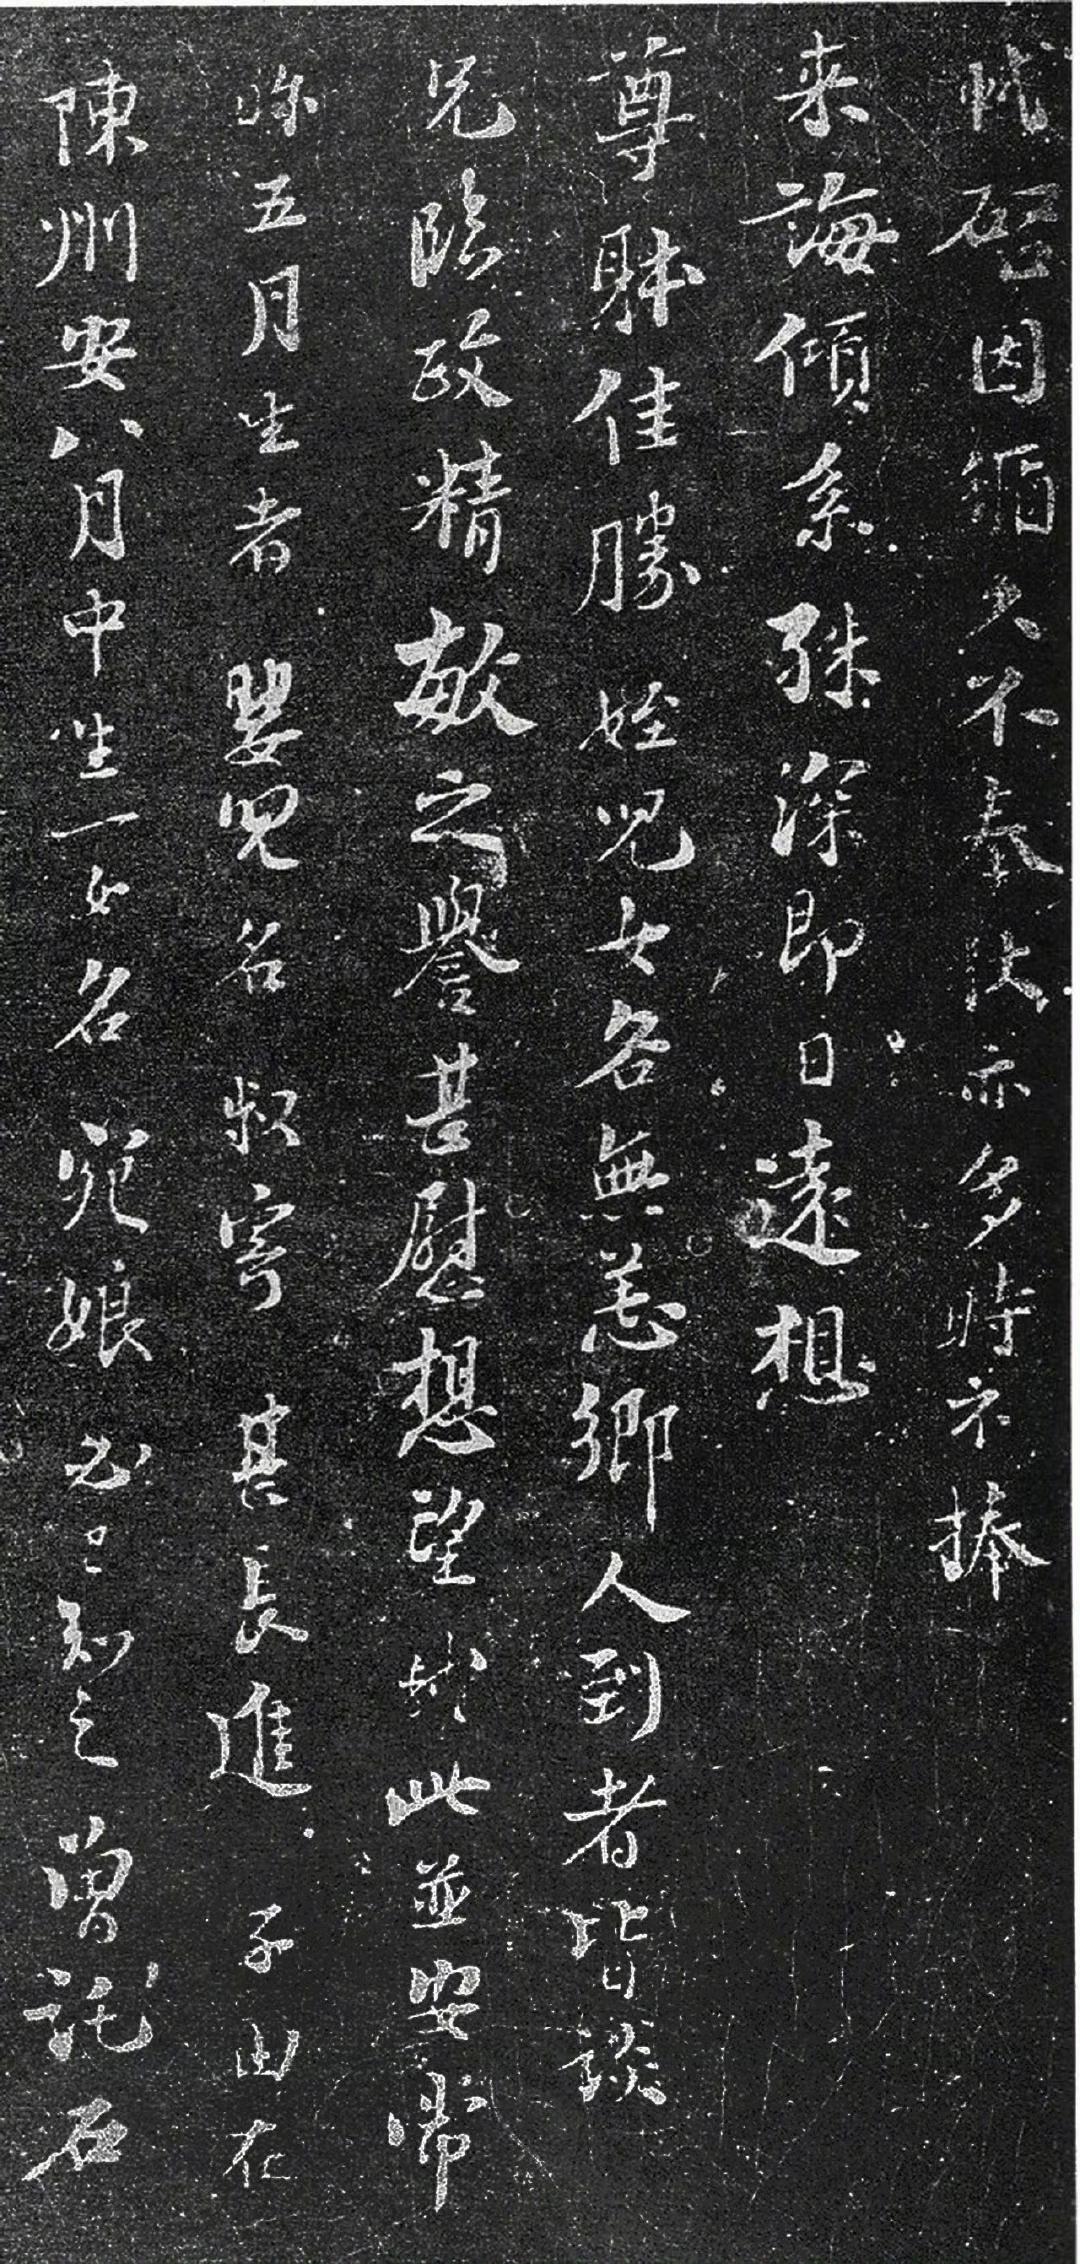 軾啓因循久不奉狀亦多時不捧
来誨傾系殊深即日遠想
尊體佳勝姪兒女各無恙鄉人到者皆談
兄臨政精敏之譽甚慰想望軾此並安常
五月生者嬰兒名叔寄甚長進子由在
陳州安八月中生一女名宛娘必已知之曾託石